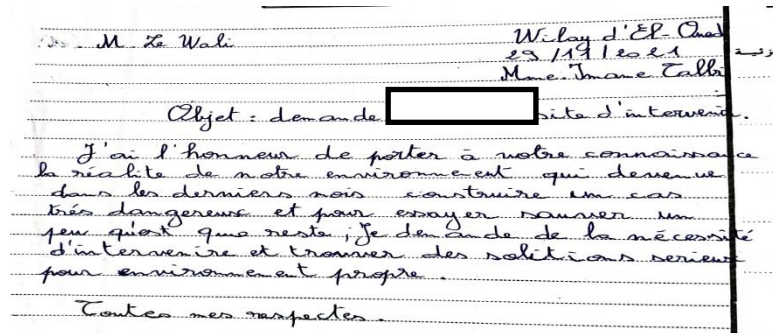 M. Le Wali
Wilay d'El-Oued
29/11/2021
Mme. Imane Talbi
Objet : demande site d'intervenir.
J'ai l'honneur de porter à votre connaissance
la réalite de notre environnement qui devenue
dans les derniers mois construire un cas
trés dangereuse et pour essayer sauver un
peu qu'est que reste, Je demande de la nécessité
d'intervenire et trouver des solitions serieux
pour environnement propre.
Toutes mes respectes.